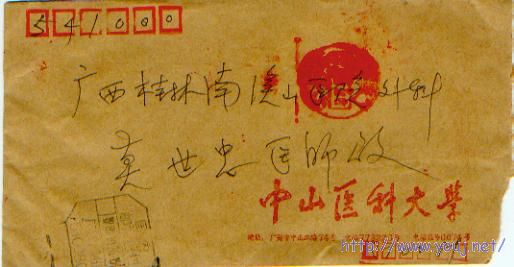 541000
广西桂林南溪山医院外科
莫世忠医师收
中山医科大学
地址：广州市中山二路74号
http://www.yocj.net/